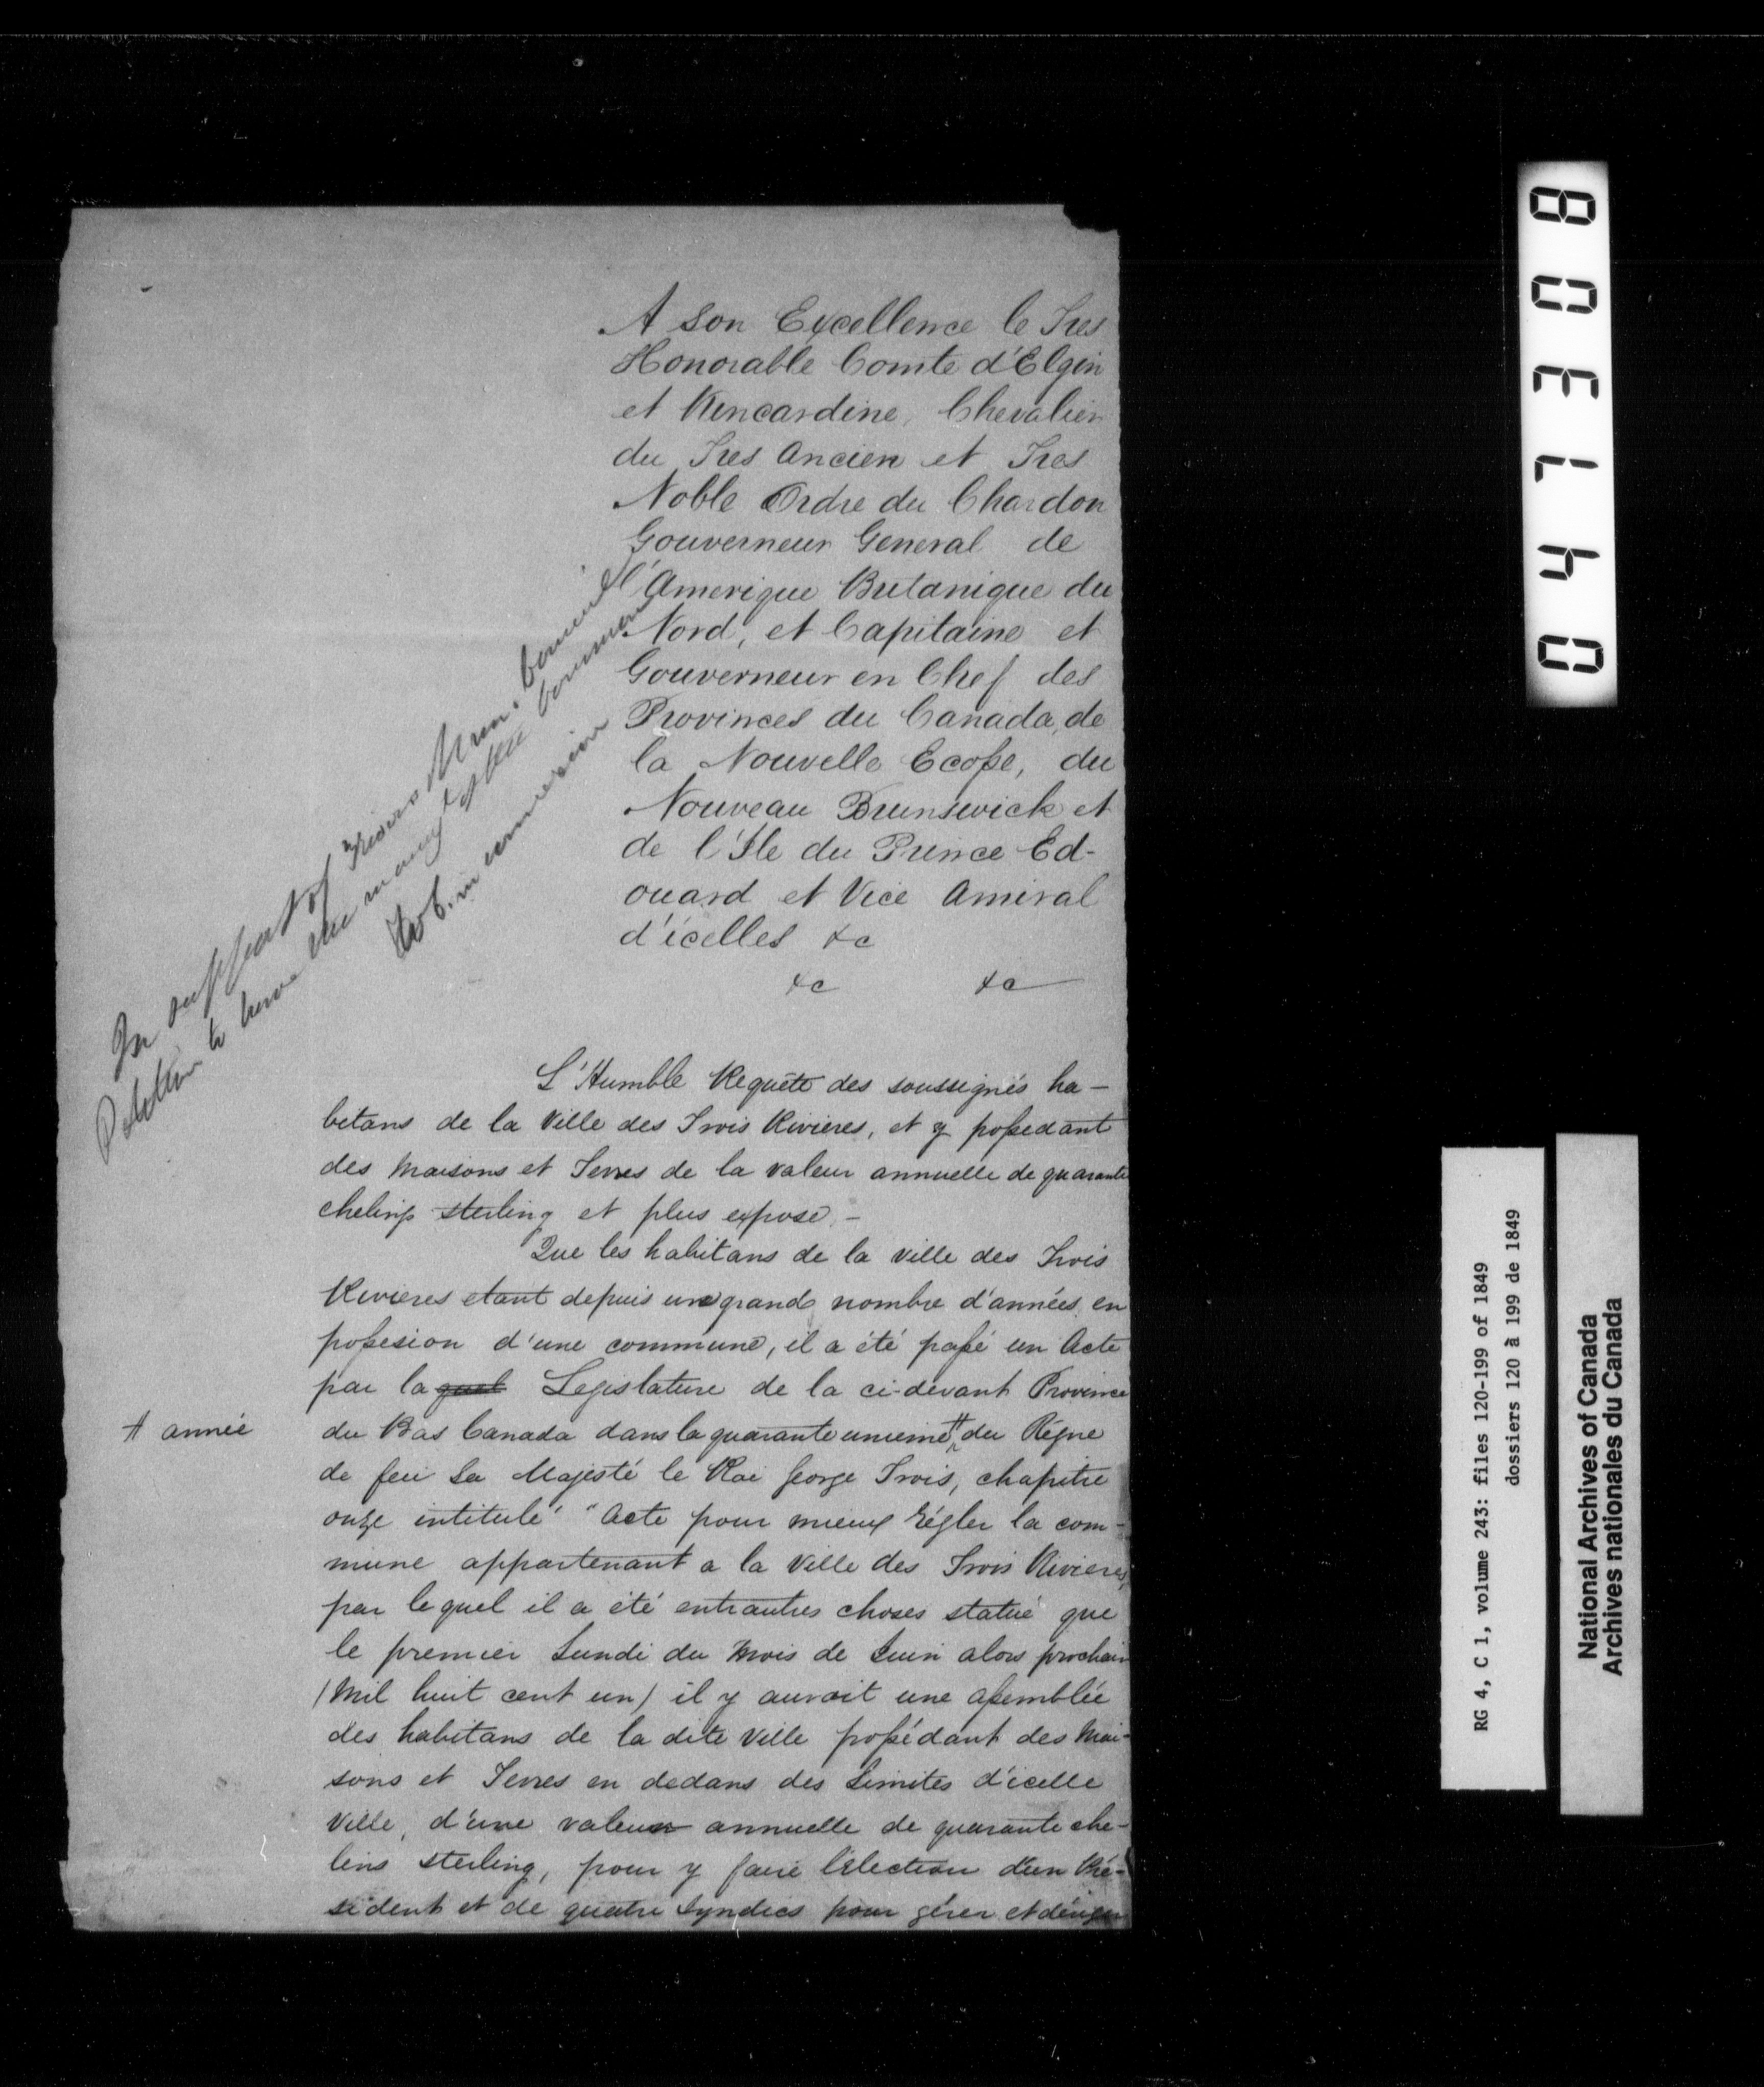 A Son Excellence le Tres
Honorable Comte d'Elgin
et Kincardine, Chevalier
du Tres Ancien et Tres
Noble Ordre du Chardon
Gouverneur General de
l'Amerique Britanique du
Nord, et Capitaine et
Gouverneur en Chef des
Provinces du Canada, de
la Nouvelle Ecosse, du
Nouveau Brunswick et
de l'Ile du Prince Ed-
ouard et Vice Amiral
d'icelles &c
&c &c
In support of 3 Rivers Mun. Council
Petition to have the managt of the Common
L'Humble Requête des soussignés ha-
bitans de la Ville des Trois Rivieres, et y possedant
des Maisons et Terres de la valeur annuelle de quarante
chelings sterling et plus expose, -
Que les habitans de la ville des Trois
Rivieres etant depuis un grand nombre d'années en
possesion d'une commune, il a été passé un Acte
par la quel Legislature de la ci-devant Province
‡ année
du Bas Canada dans la quarante unieme ‡ du Régne
de feu Sa Majesté le Roi George Trois, chapitre
onze intitulé "Acte pour mieux Régler la com-
mune appartenant a la Ville des Trois Rivieres,
par lequel il a été entrautres choses statué que
le premier Lundi du Mois de Juin alors prochain
(Mil huit cent un) il y auroit une assemblée
des habitans de la dite Ville possédant des Mai-
sons et Terres en dedans des Limites d'icelle
Ville, d'une valeur annuelle de quarante che-
lins sterling, pour y faire l'élection d'un Pré-
sident et de quatre Syndics pour gérer et diriger
047308
RG 4, C 1, volume 243: files 120-199 of 1849
dossiers 120 à 199 de 1849
National Archives of Canada
Archives nationales du Canada